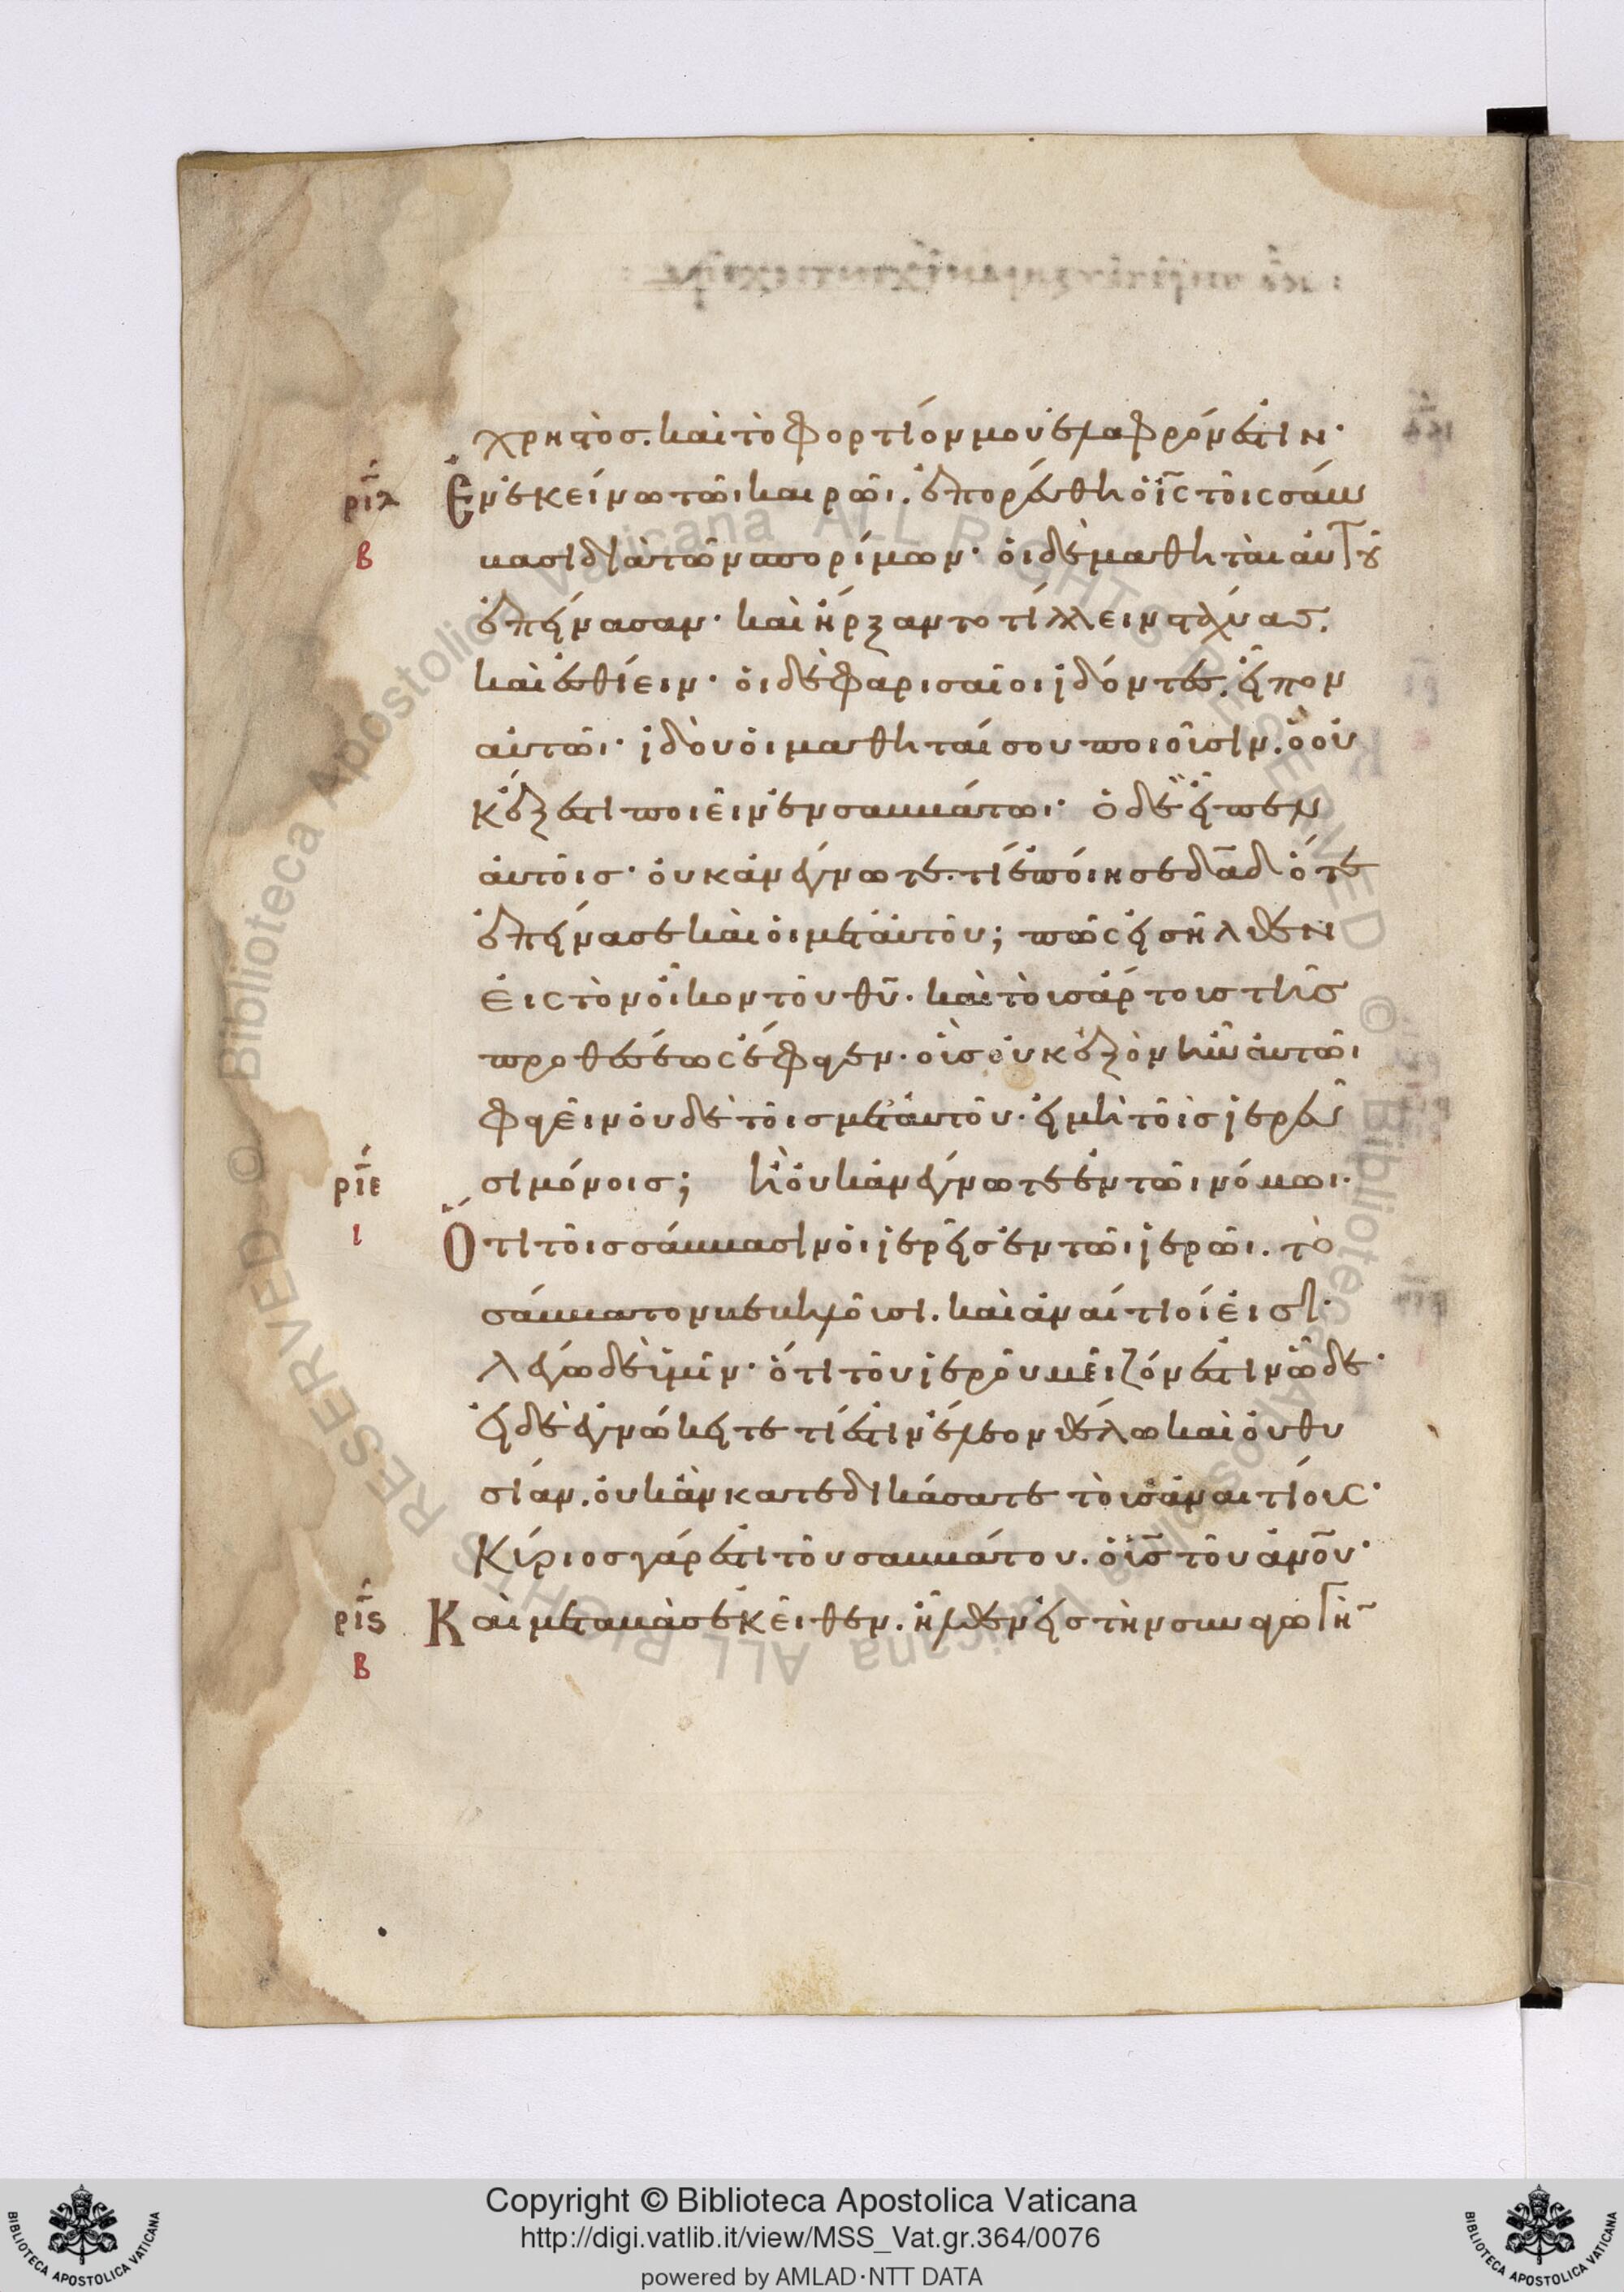 χρηστὸσ. καὶ τὸ φορτίον μου ἐλαφρόν ἐστιν·
ριδ Ἐν ἐκείνω τῶι καιρῶι. ἐπορεύθη ὁ ις τοῖς σάβ
β βασι διὰ τῶν σπορίμων· οἱ δὲ μαθηταὶ αὐτοῦ
ἐπείνασαν· καὶ ἤρξαντο τίλλειν στάχυασ.
καὶ ἐσθίειν· οἱ δὲ φαρισαῖοι ἰδόντεσ. εἶπον
αὐτῶι· ἰδοὺ οἱ μαθηταί σου ποιοῦσιν. ὃ οὐ
κ ἔξεστι ποιεῖν ἐν σαββάτωι· ὁ δὲ εἶπεν
αὐτοῖσ· οὐκ ἀνέγνωτε. τί ἐποίησε δαδ ὅτε
ἐπείνασε καὶ οἱ μετ' αὐτοῦ; πῶς εἰσῆλθεν
εἰς τὸν οἶκον τοῦ θυ. καὶ τοὺσ ἄρτουσ τῆσ
προθέσεως ἔφαγεν. οὓσ οὐκ ἐξὸν ἦν αὐτῶι
φαγεῖν οὐδὲ τοῖσ μετ' αὐτοῦ. εἰ μὴ τοῖσ ἱερεῦ
ριε σι μόνοισ; ἢ οὐκ ἀνέγνωτε ἐν τῶι νόμωι.
ι Ὅτι τοῖσ σάββασιν οἱ ἱερεῖσ ἐν τῶι ἱερῶι. τὸ
σάββατον βεβηλοῦσι. καὶ ἀναίτιοί εἰσι·
λέγω δὲ ὑμῖν· ὅτι τοῦ ἱεροῦ μεῖζόν ἐστιν ὧδε·
εἰ δὲ ἐγνώκειτε τί ἐστιν ἔλεον θέλω καὶ οὐ θυ
σίαν. οὐκ ἂν κατεδικάσατε τοὺσ ἀναιτίουσ·
Κύριοσ γάρ ἐστι τοῦ σαββάτου. ὁ υισ τοῦ ανου·
ρις Καὶ μεταβὰσ ἐκεῖθεν. ἦλθεν εἰσ τὴν συναγωγὴν
β
Copyright © Biblioteca Apostolica Vaticana
http://digi.vatlib.it/view/MSS_Vat.gr.364/0076
powered by AMLAD·NTT DATA